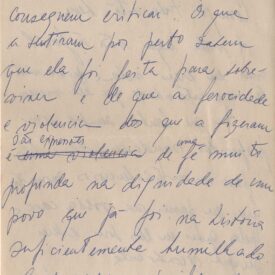 conseguem criticar. Os que
a sentiram por perto sabem
que ela foi feita para sobre-
viver e de que a ferocidade
e violencia dos que a fizeram
são expressões uma
é uma violencia de fé muito
profunda na dignidade de um
povo que já foi na história
suficientemente humilhado